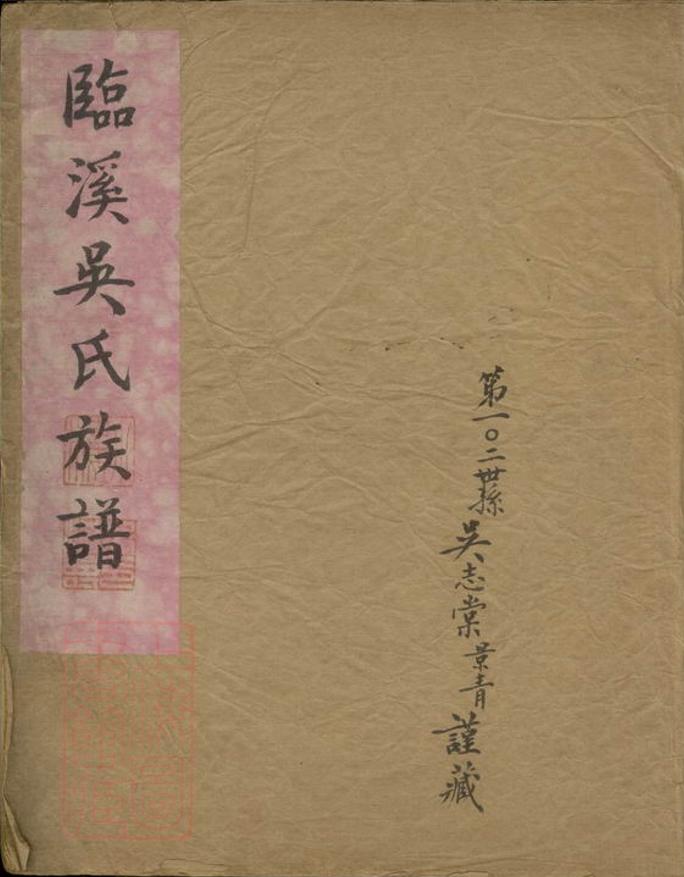 臨溪吳氏族譜
第一〇二世孫吳志棠景青謹藏